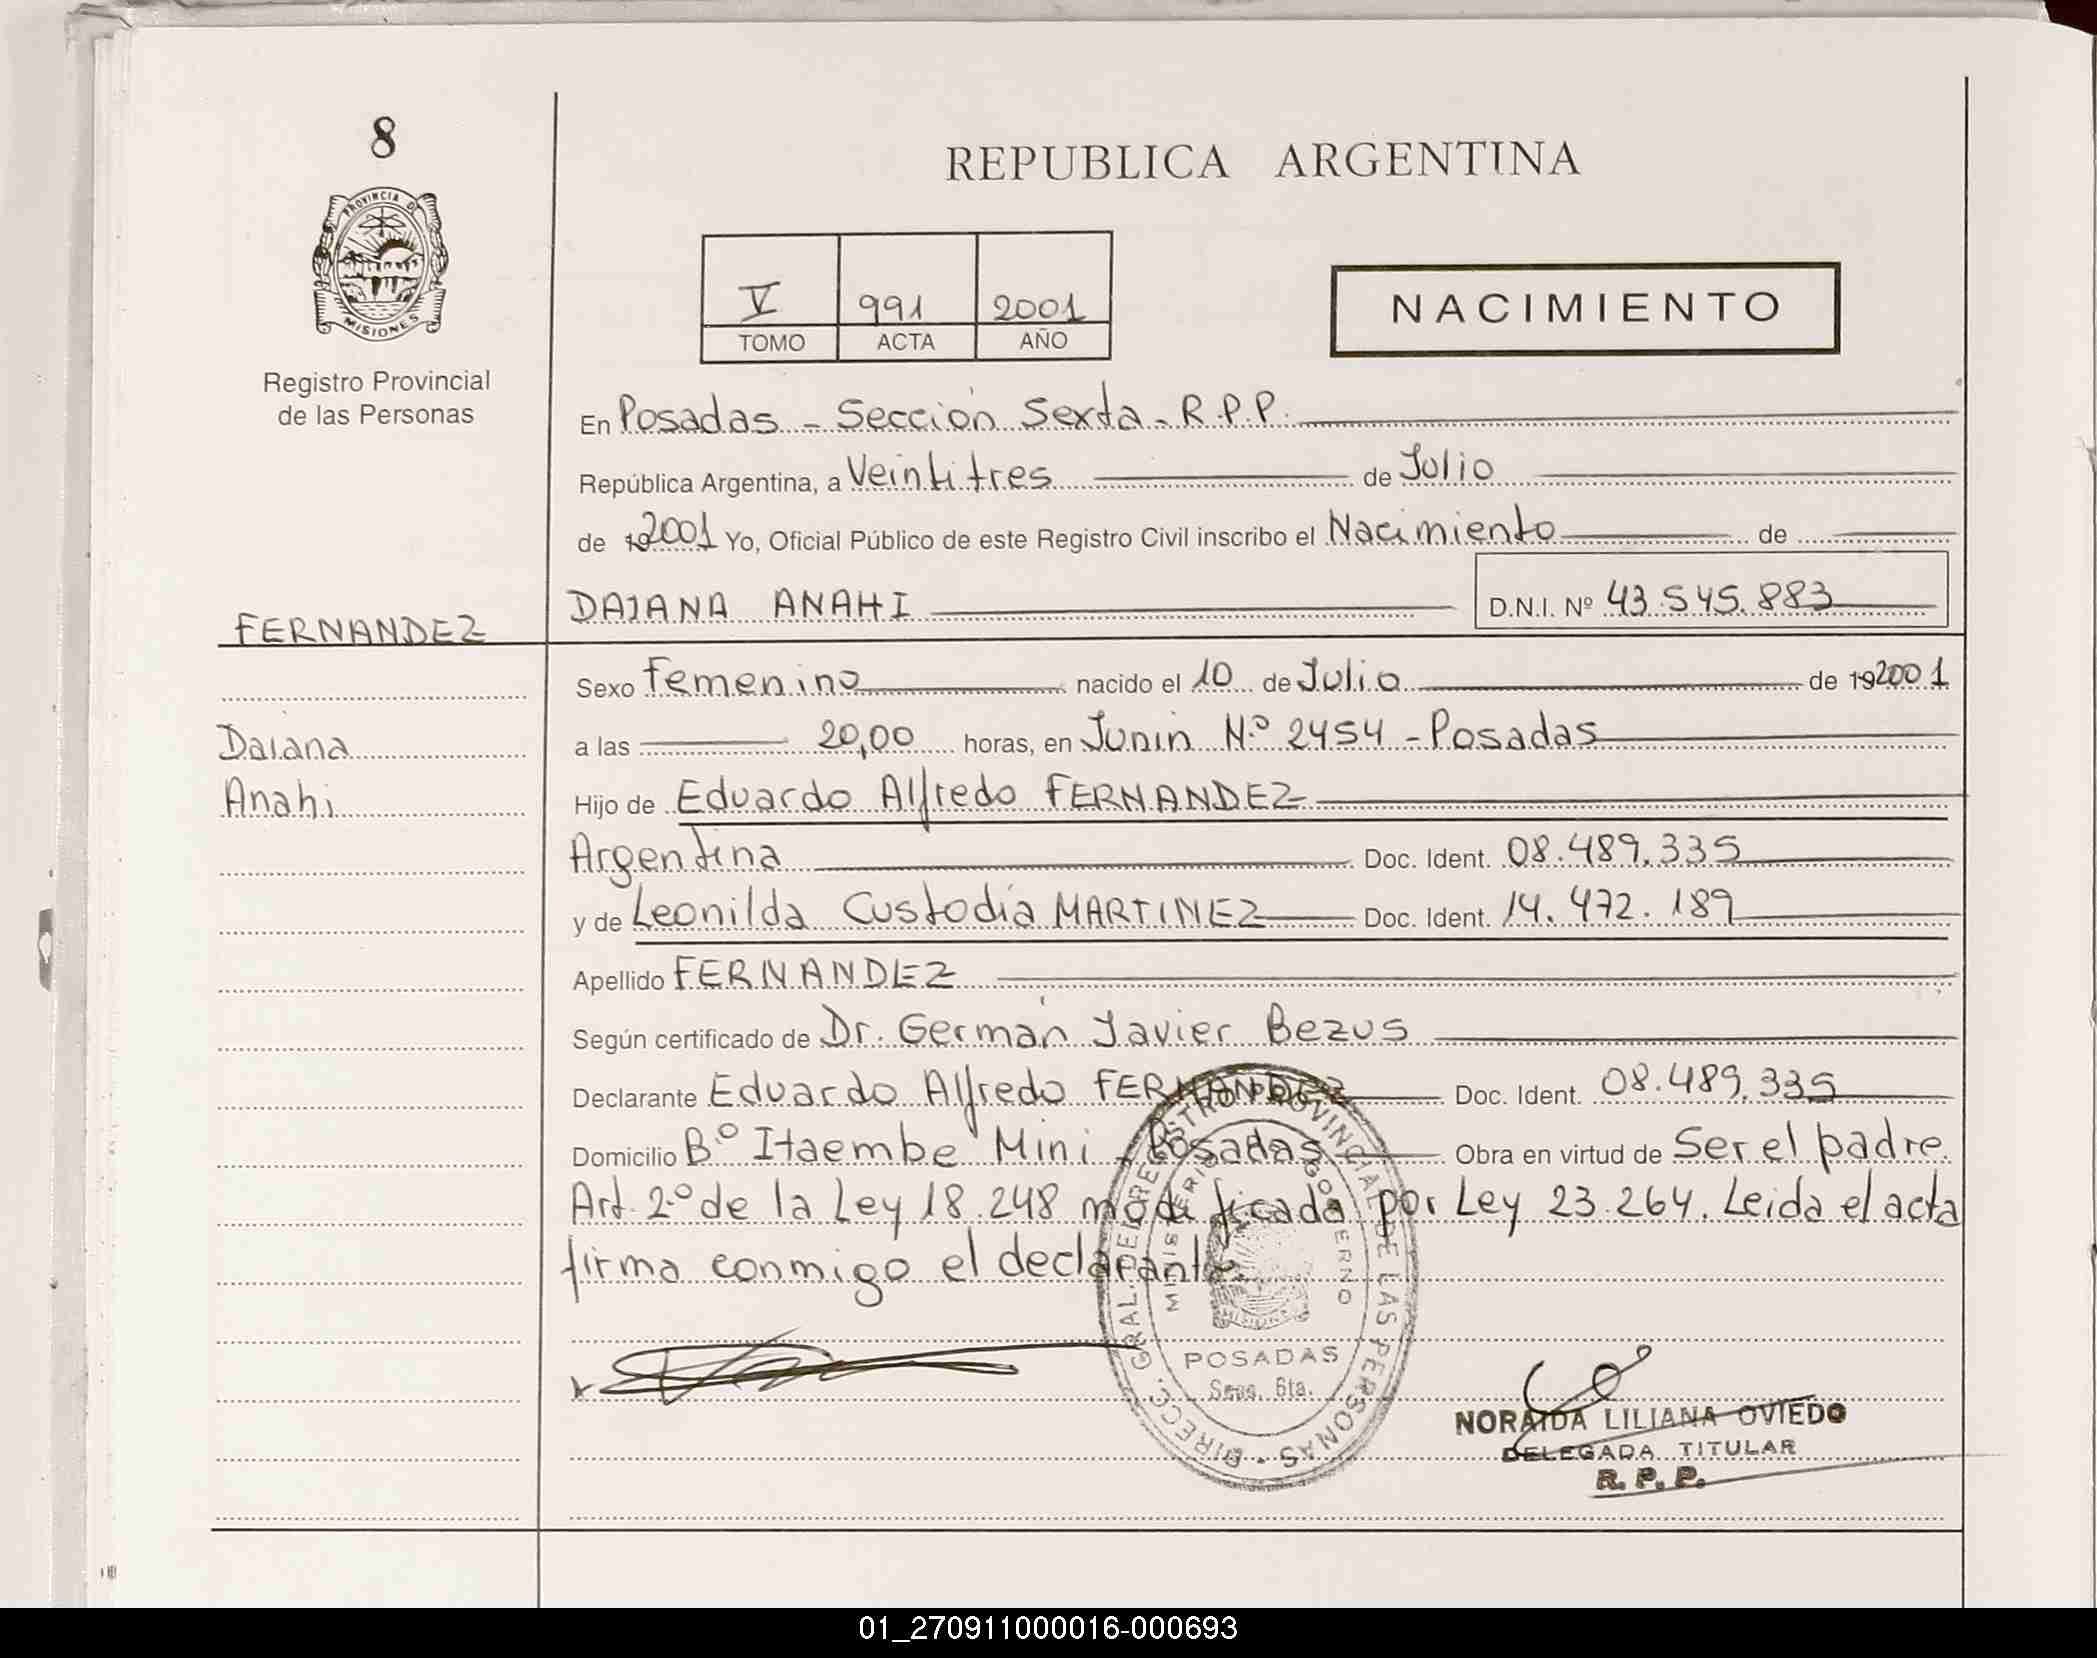 8
PROVINCIA DE
MISIONES
Registro Provincial
de las Personas
REPUBLICA ARGENTINA
V 991 2001
TOMO ACTA AÑO
NACIMIENTO
En Posadas - Sección Sexta - R.P.P.
República Argentina, a Veintitres de Julio
de 192001 Yo, Oficial Público de este Registro Civil inscribo el Nacimiento de
FERNANDEZ
DAIANA ANAHI D.N.I. Nº 43.545.883
Sexo Femenino nacido el 10 de Julio de 192001
Daiana
a las 20,00 horas, en Junin Nº 2454 - Posadas
Anahi
Hijo de Eduardo Alfredo FERNANDEZ
Argentina Doc. Ident. 08.489.335
y de Leonilda Custodia MARTINEZ Doc. Ident. 14.472.189
Apellido FERNANDEZ
Según certificado de Dr. Germán Javier Bezus
Declarante Eduardo Alfredo FERNANDEZ Doc. Ident. 08.489.335
Domicilio Bº Itaembe Mini - Posadas Obra en virtud de Ser el padre.
Art. 2º de la Ley 18.248 modificada por Ley 23.264. Leida el acta
firma conmigo el declarante.
DIRECC. GRAL. DEL REGISTRO PROVINCIAL DE LAS PERSONAS
MINISTERIO GOBIERNO
MISIONES
POSADAS
Secc. 6ta.
NORAIDA LILIANA OVIEDO
DELEGADA TITULAR
R. P. P.
01_270911000016-000693